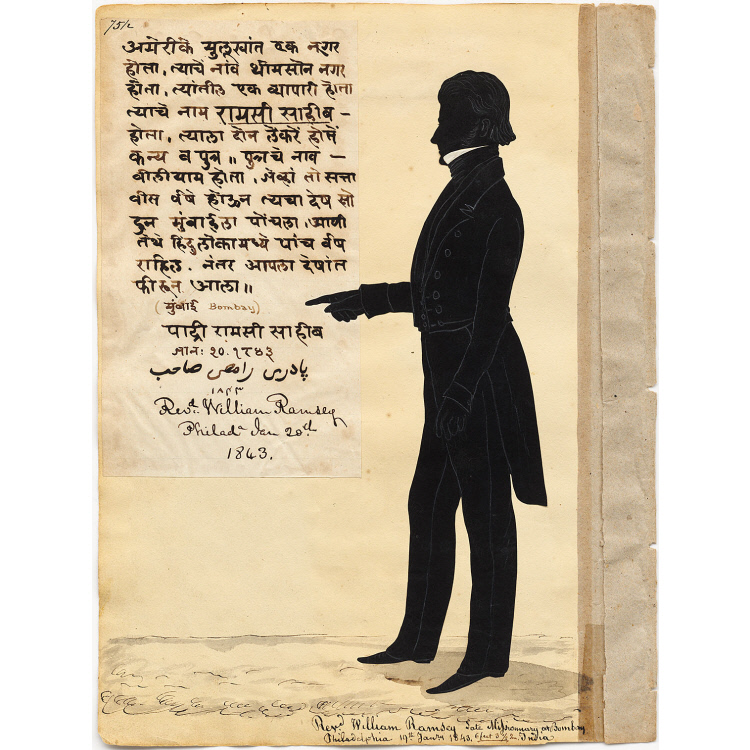 75/2
अमेरीके मुलुखांत एक नगर
होता, त्याचें नांव थॉमसोन नगर
होता, त्यांतील एक व्यापारी होता
त्याचे नाम रामसी साहीब –
होता, त्याला दोन लेंकरें होतें
कन्य व पुत्र ॥ पुत्राचे नाव –
वीलीयाम होता, जेव्हां तो सत्ता
वीस र्वषे होऊन त्यचा देष सो
डुन मुंबाईला पोंचला, आणी
तेथे हिंदुलोकामध्ये पांच र्वष
राहिल, नंतर आपला देषांत
फीरून आला॥
(मुंबाई Bombay)
पाद्री रामसी साहीब
जान: २०.१८४३
پادری رامسی صاحب
١٨٤٣
Revd. William Ramsey
Philada Jan 20th
1843.
Revd William Ramsey Late Missionary at Bombay
Philadelphia 19th Jany 1843. 6 feet 3 1/2 in. India